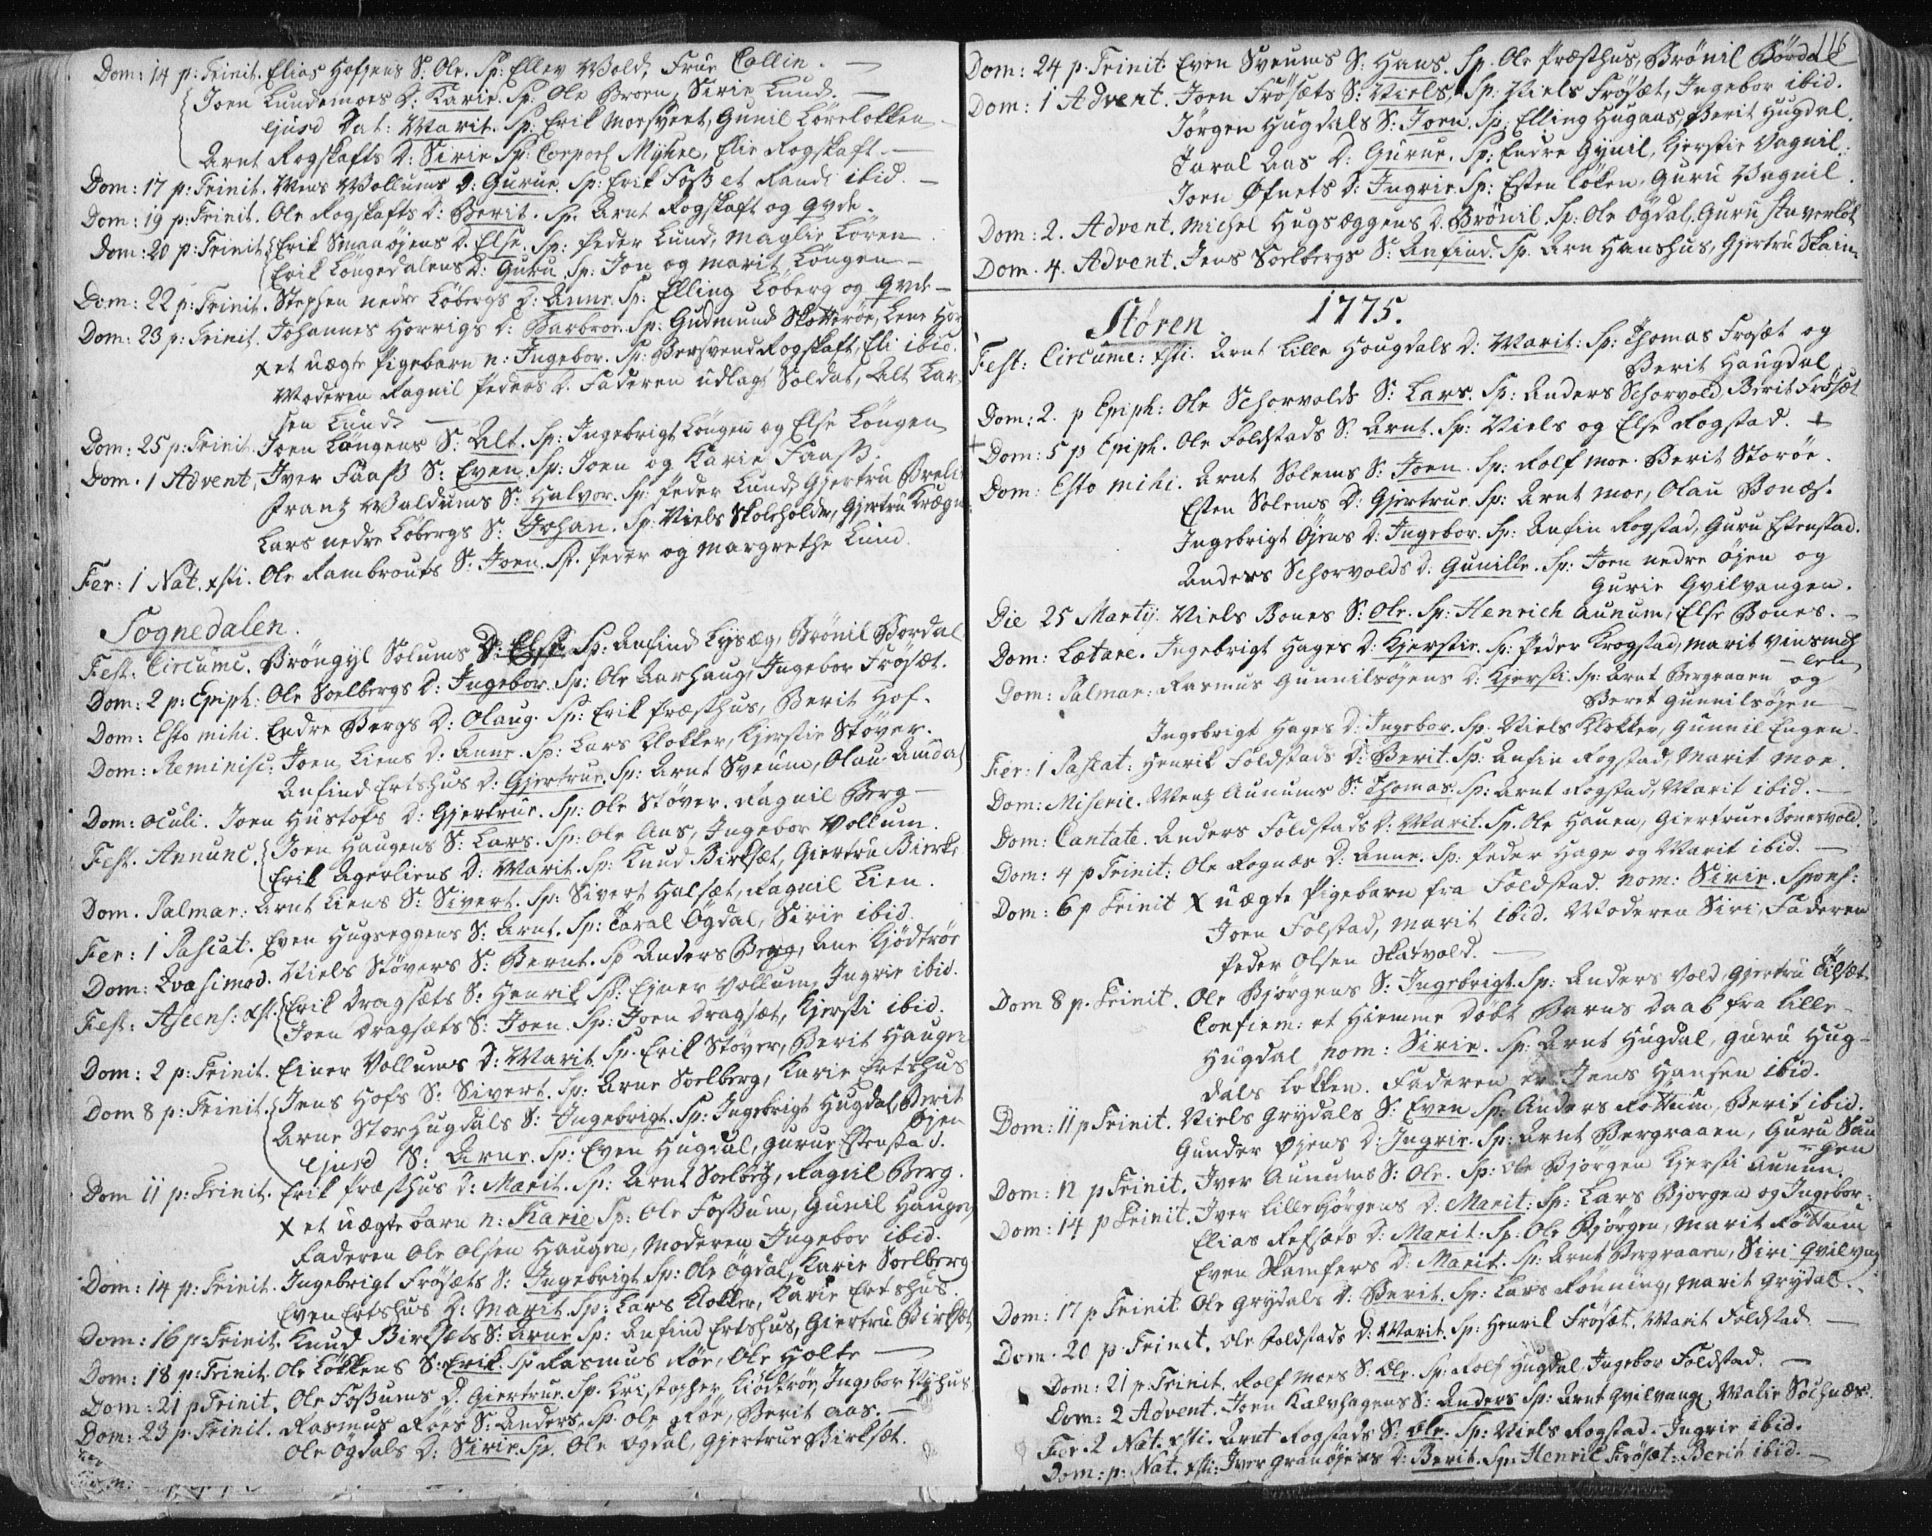 Dom: 14 p: Trinit. Elias Hofsens S: Ole. Sp: Ellev Wold, Frue Collin. —
Joen Lundemoes D: Karie. Sp. Ole Broen, Sirie Lund. —
ejusd Dat: Marit. Sp. Erik Morsvent, Gunil Lørelokken
Arnt Rogskafts D: Sirie Sp: Corporl Myhre, Elie Rogskaft. —
Dom: 17 p: Trinit. Mens Wollums D: Gurue. Sp: Erik Foss et Randi ibid. —
Dom: 19 p: Trinit. Ole Rogskafts D: Berit. Sp. Arnt Rogskaft og Qvde.
Dom: 20 p: Trinit. Erik Smaaøjens D. Else. Sp: Peder Lund, Maglie Løren
Erik Løngedalens D: Guru. Sp: Jon og Marit Løngen —
Dom: 22 p: Trinit. Stephen nedre Løbergs D: Anne. Sp. Elling Løberg og Qvde —
Dom: 23 p: Trinit. Johannes Horrigs D: Barbroe. Sp: Gudmund Skotterøe, Lene Hor
x et uægte Pigebarn n: Ingebor. Sp: Bersvend Rogskaft, Eli ibid.
Moderen Ragnil Peders D. Faderen udlagt Soldat, Alt Lar-
sen Lund —
Dom: 25 p: Trinit. Joen Løngens S: Alt. Sp: Ingebrigt Løngen og Else Løngen
Dom. 1 Advent, Iver Faass S: Even. Sp: Joen og Karie Faass.
Frantz Waldums S: Halvor. Sp: Peder Lund, Gjertru
Lars nedre Løbergs S: Johan. Sp: Niels Skoleholder, Gjertru
Fer: 1 Nat. xsti. Ole Rambrouts S: Joen. Sp. Peder og Margrethe Lund.
Sognedalen.
Fest. Circumc. Brøngyl Solums D: Else. Sp: Anfind Lysæg, Brønil Bordal
Dom: 2 p: Epiph: Ole Soelbergs D: Ingebor. Sp: Ole Aarhaug, Ingebor Frøsæt.
Dom: Esto mihi. Endre Bergs D: Olaug. Sp: Erik Præsthus, Berit Hof.
Dom: Reminisc: Joen Liens D: Anne. Sp: Lars Klokker, Kjerstie Støver.
Anfind Ertshus D: Gjertrue. Sp: Arnt Sveum, Olau Amdal
Dom: Oculi. Joen Hustofs D: Gjertrue. Sp: Ole Støver. Ragnil Berg —
Fest. Annunc. Joen Haugens S: Lars. Sp: Ole Aas, Ingebor Vollum.
Erik Agerliens D: Marit. Sp: Knud Birksæt, Giertru Bierk:
Dom. Palmar: Arnt Liens S: Sivert. Sp: Sivert Halsæt, Ragnil Lien.
Fer: 1 Pascat. Even Hugseggens S: Arnt. Sp: Taral Øgdal, Sirie ibid.
Dom: Qvasimod. Niels Støvers S: Bernt. Sp Anders Berg, Ane Kjødtrøe
Fest: Ascens: xst. Erik Dragsæts S: Henrik Sp: Einer Vollum, Ingrie ibid.
Joen Dragsæts S: Joen. Sp: Joen Dragsæt, Kjersti ibid.
Dom: 2 p: Trinit. Einer Vollums D: Marit Sp. Erik Støver, Berit Haugen
Dom 8 p: Trinit. Jens Hofs S: Sivert. Sp: Arne Soelberg, Karie Ertshus
Arne Storhugdals S: Ingebrigt. Sp: Ingebrigt Hugdal, Berit
Øjen
ejusd S: Arne. Sp: Even Hugdal, Gurue Estenstad.
Dom 11 p: Trinit. Erik Præsthus D: Marit. Sp: Arnt Soelberg, Ragnil Berg.
x et uægte barn n: Karie Sp: Ole Fossum, Gunil Haugen,
Faderen Ole Olsen Haugen, Moderen Ingebor ibid.
Dom: 14 p: Trinit. Ingebrigt Frøsæts S: Ingebrigt Sp: Ole Øgdal, Karie Soelberg
Even Ertshus D: Marit. Sp: Lars Klokker, Karie Ertshus.
Dom: 16 p: Trinit. Knud Birksæts S: Arne Sp: Anfind Ertshus, Giertru Birksæt
Dom: 18 p: Trinit. Ole Løkkens S: Erik. Sp Rasmus Røe, Ole Holte —
Dom: 21 p Trinit. Ole Fossums D. Giertrue. Sp. Kristopher Kiødtrøe, Ingebor Nyhus
Dom: 23 p: Trinit. Rasmus Roes S: Anders. Sp. Ole Røe, Berit Aas. —
Ole Øgdals D: Sirie. Sp. Ole Øgdal, Gjertrue Birksæt.
116
Dom: 24 p. Trinit Even Sveums S: Hans. Sp. Ole Præsthus, Brønil Bordal
Dom: 1 Advent. Joen Frøsæts S: Niels. Sp: Niels Frøsæt, Ingebor ibid.
Jørgen Hugdals S: Joen. Sp: Elling Hugaas, Berit Hugdal.
Taral Aas D: Gurue. Sp: Endre Gynil, Kjerstie Vagnil.
Joen Øfnets D: Ingrie Sp: Esten Løken, Guru Vagnil.
Dom: 2. Advent. Michel Hugsæggens D. Brønil. Sp: Ole Øgdal. Guru Staverløk
Dom. 4. Advent. Jens Soelbergs S: Anfind. Sp. Arn Hanshus, Gjertru Skain.
Støren. 1775.
Fest: Circumc: xsti. Arnt Lille Hougdals D: Marit: Sp: Thomas Frosæt og
Berit Haugdal
Dom: 2. p Epiph: Ole Schorvolds S: Lars. Sp: Anders Schorvold, Berit Frøsæt
+ Dom: 5 p Epiph. Ole Foldstads S: Arnt. Sp: Niels og Else Rogstad. +
Dom: Esto mihi. Arnt Solems S: Joen. Sp: Rolf Moe. Berit Storøe.
Esten Solems D: Gjertrue Sp: Arnt Moe, Olau Bonæs.
Ingebrigt Øjens D: Ingebor. Sp: Anfin Rogstad, Guru Estenstad.
Anders Schorvolds D: Gunille. Sp: Joen nedre Øjen og
Gurie Gvilvangen.
Die 25 Martij. Niels Bones S: Ole. Sp: Henrich Aunum, Else Bones. —
Dom: Lætare. Ingebrigt Hages D: Kjerstie. Sp: Peder Krogstad, Marit Vinsnæs
Dom: Palmar: Rasmus Gunnilsøjens D: Kjersti. Sp: Arnt Bergraaen og
Beret Gunnilsøjen —
Ingebrigt Hages D: Ingebor. Sp. Niels Klokker, Gunnil Engen.
Fer: 1 Paskat: Henrik Foldstads D: Berit. Sp: Anfin Rogstad, Marit Moe.
Dom: Miseric. Mentz Aunums S: Thomas. Sp: Arnt Rogstad, Marit ibid. —
Dom: Cantate. Anders Foldstads D: Marit. Sp. Ole Hauen, Giertrue Bonesvold.
Dom: 4 p Trinit: Ole Rognæs D: Anne. Sp: Peder Hage og Marit ibid. —
Dom: 6 p Trinit x uægte Pigebarn fra Foldstad. nom: Sirie. Spons:
Joen Folstad, Marit ibid. Moderen Siri, Faderen
Peder Olsen Skatvold. —
Dom 8 p. Trinit. Ole Bjørgens S: Ingebrigt. Sp: Anders Vold, Gjertru Tilsæt.
Confirm: et Hiemme døbt Barns Daab fra Lille-
Hugdal nom: Sirie. Sp: Arnt Hugdal, Guru Hug-
dals Løkken. Faderen er Jens Hansen ibid.
Dom: 11 p Trinit. Niels Grydals S: Even Sp: Anders Røttum, Berit ibid.
Gunder Øjens D: Ingrie. Sp: Arnt Bergraaen, Guru Hau
gen
Dom: 12 p Trinit. Iver Aunums S: Ole. Sp: Ole Bjørgen Kjersti Aunum.
Dom: 14 p Trinit. Iver Lillebjørgens D: Marit: Sp: Lars Bjorgen og Ingebor.
Elias Refsæts D: Marit: Sp: Ole Bjørgen, Marit Røttum
Even Skamfers D: Marit. Sp: Arnt Bergraaen, Siri Qvilvang
Dom: 17 p Trinit Ole Grydals D: Berit. Sp: Lars Rønning, Marit Grydal.
Dom. 20 p. Trinit. Ole Foldstads D: Marit. Sp: Henrik Frøsæt. Marit Foldstad. —
Dom: 21 p. Trinit. Rolf Moes S: Ole. Sp: Rolf Hugdal, Ingebor Foldstad. —
Dom: 2 Advent. Joen Kalvhagens S: Anders Sp: Arnt Qvilvang, Malie Sochnæs.
Fer. 2 Nat. xsti. Arnt Rogstads S: Ole. Sp: Niels Rogstad. Ingrie ibid.
Dom: p: Nat. xsti: Iver Granøjens D: Berit. Sp: Henrik Frøsæt: Berit ibid. —